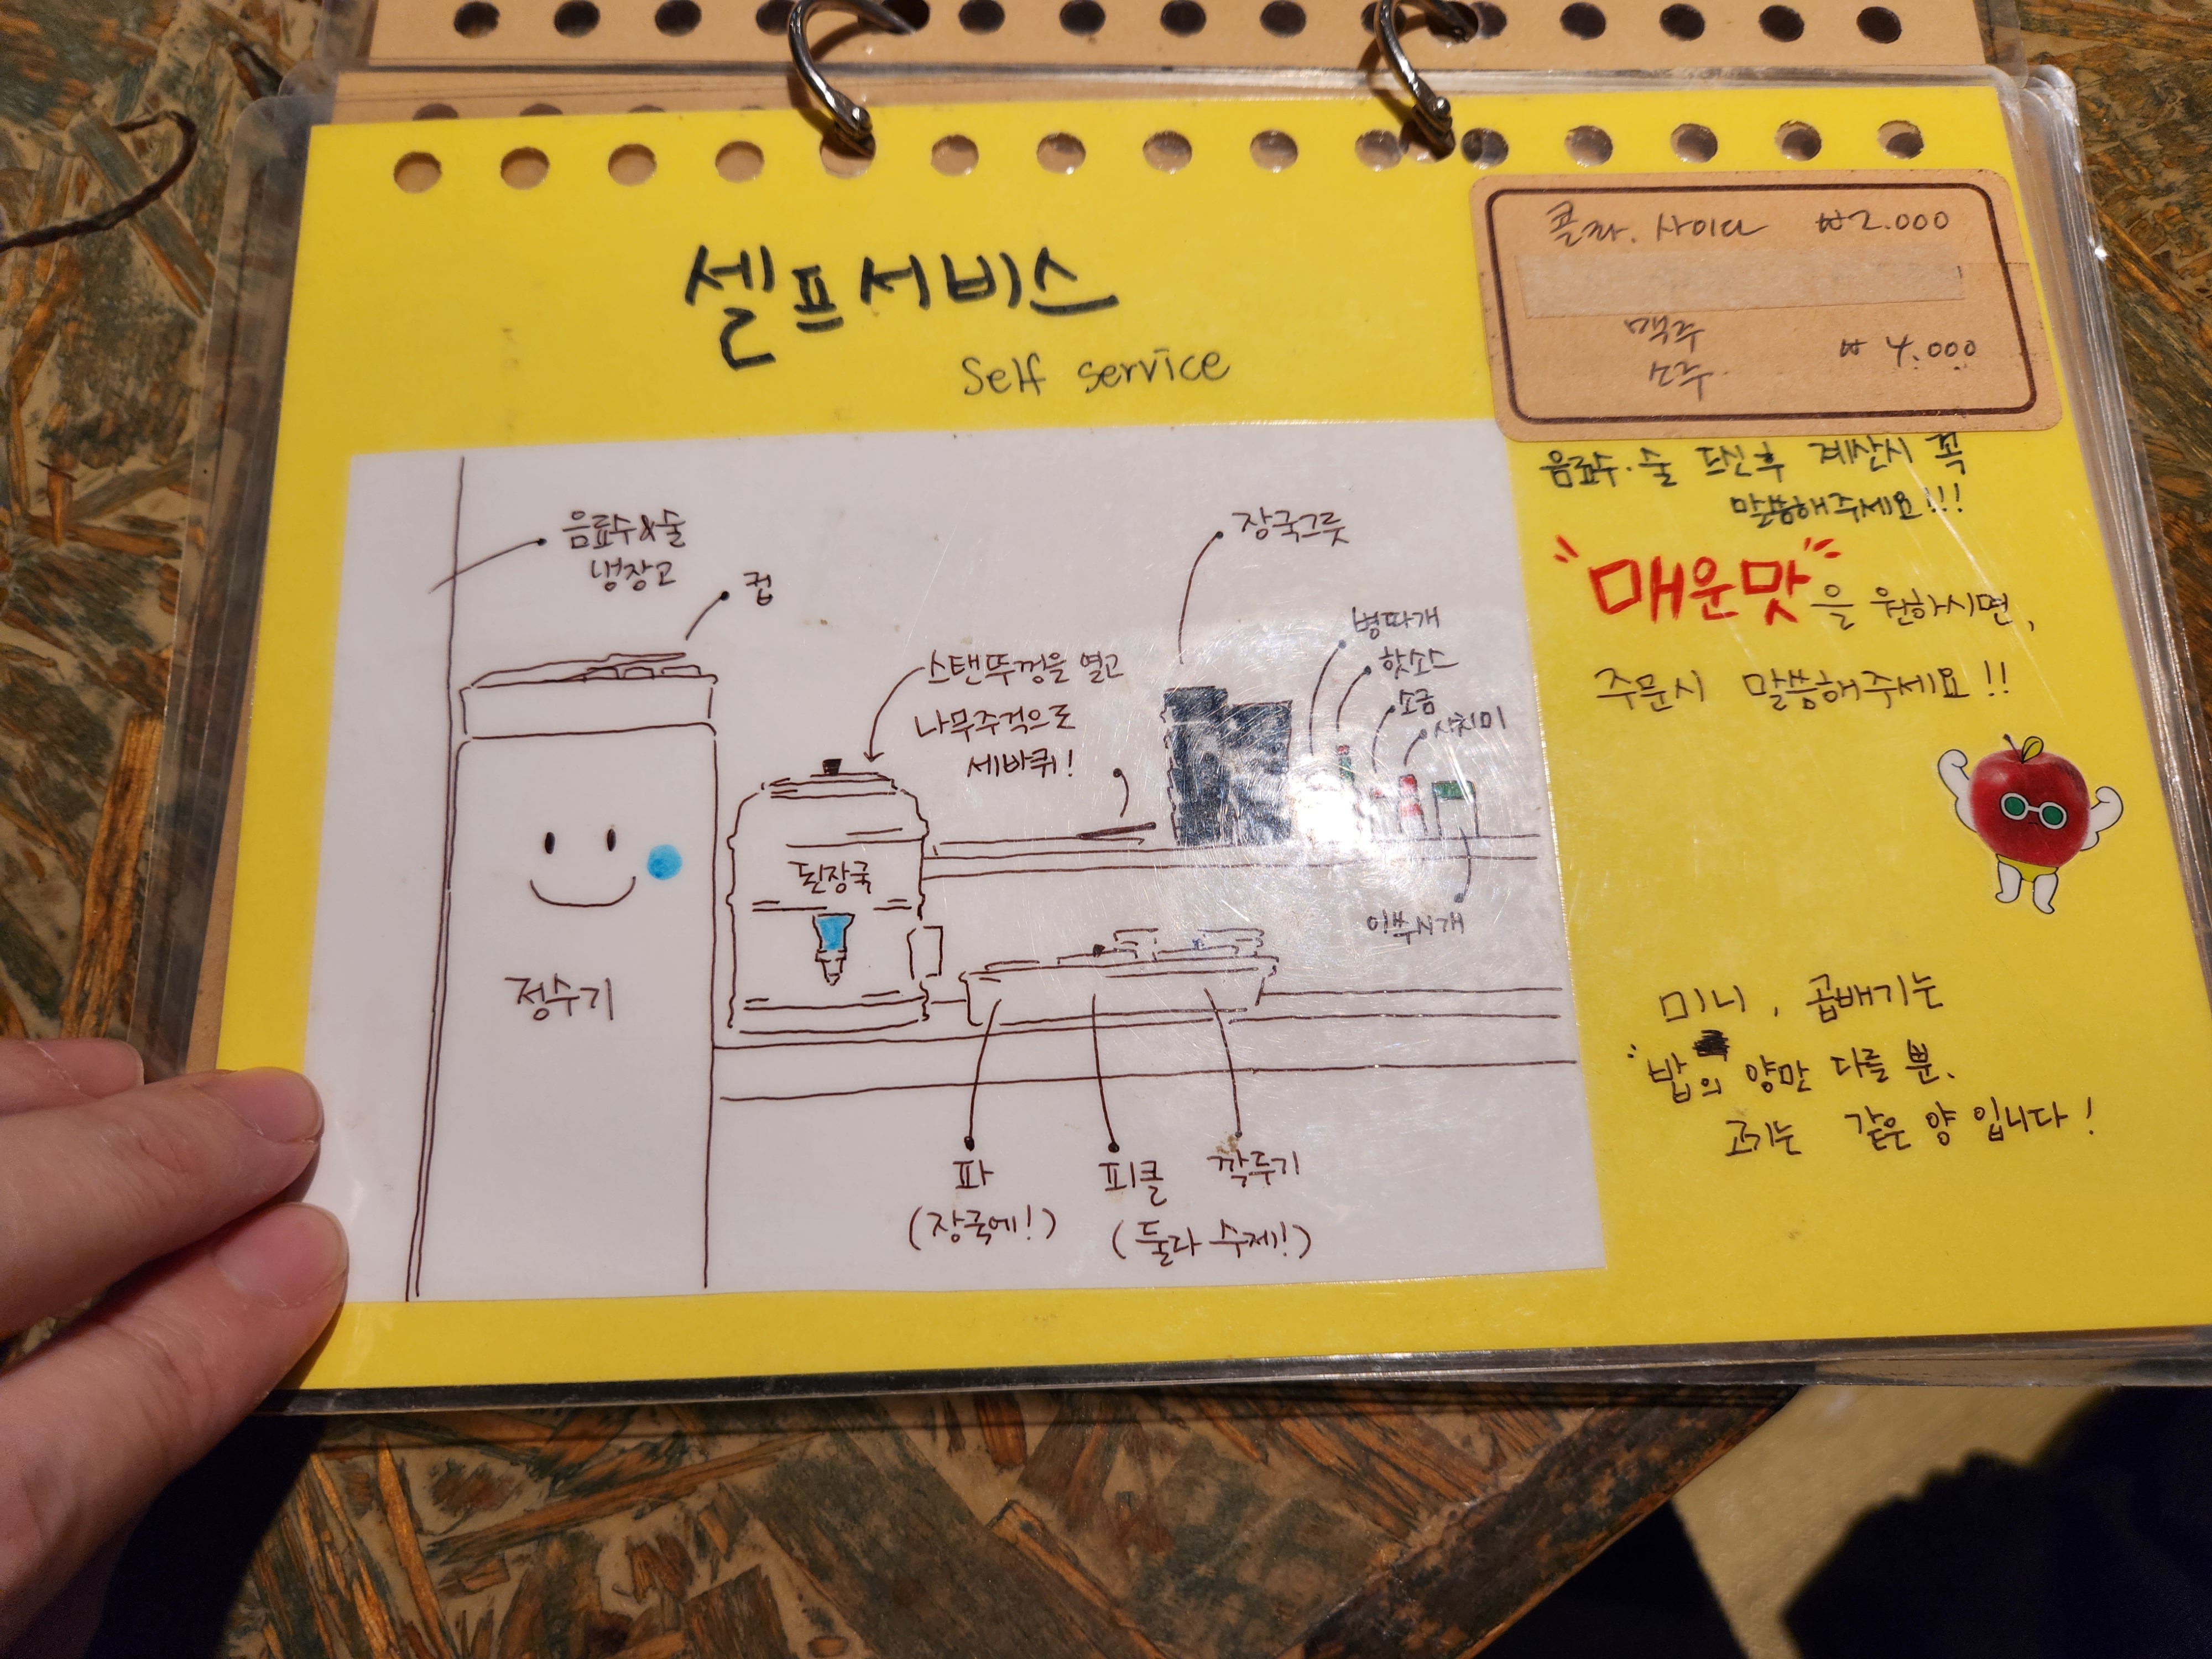 셀프서비스
Self service
콜라. 사이다 ₩2.000
맥주
소주. ₩4.000
음료수.술 드신후 계산시 꼭
말씀해주세요!!!
"매운맛"을 원하시면,
주문시 말씀해주세요!!
음료수&술
냉장고
컵
스탠뚜껑을 열고
나무주걱으로
세바퀴!
장국그릇
병따개
핫소스
소금
시치미
이쑤시개
된장국
정수기
파
(장국에!)
피클 깍두기
(둘다 수제!)
미니, 곱배기는
"밥의 양만 다를 뿐.
고기는 같은 양 입니다!